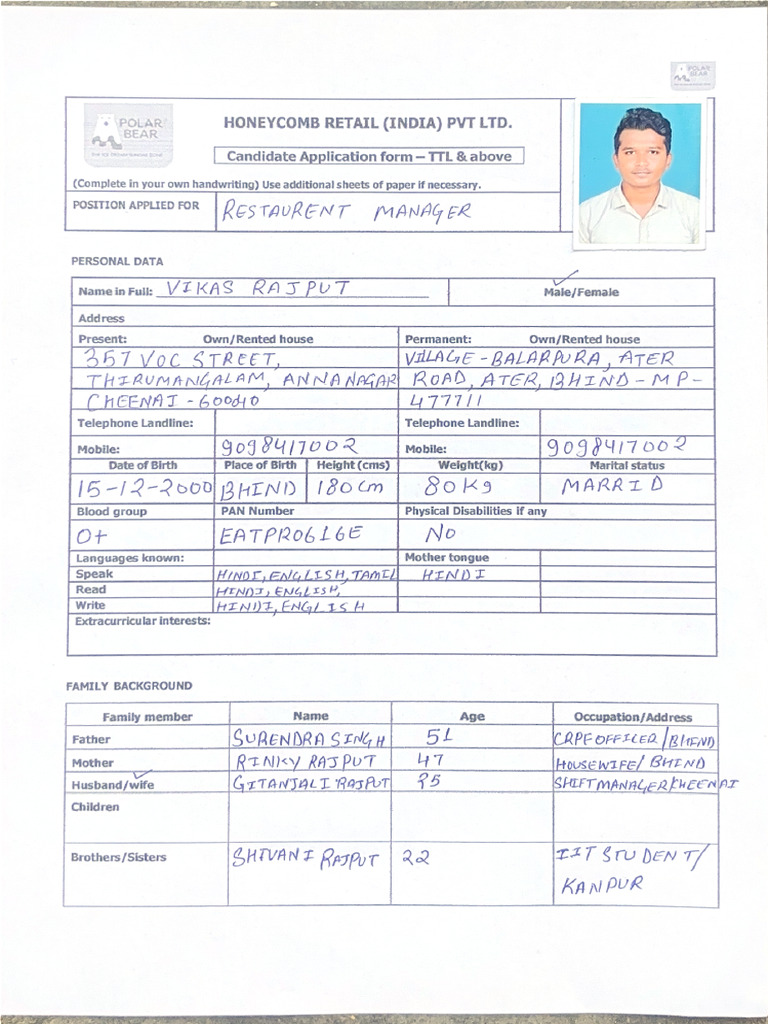 POLAR BEAR
POLAR BEAR
HONEYCOMB RETAIL (INDIA) PVT LTD.
Candidate Application form – TTL & above
(Complete in your own handwriting) Use additional sheets of paper if necessary.
POSITION APPLIED FOR RESTAURENT MANAGER
PERSONAL DATA
Name in Full: VIKAS RAJPUT Male/Female
Address
Present: Own/Rented house Permanent: Own/Rented house
357 VOC STREET, VILLAGE-BALARPURA, ATER
THIRUMANGALAM, ANNANAGAR ROAD, ATER, BHIND-MP-
CHEENAI-600040 477711
Telephone Landline: Telephone Landline:
Mobile: 9098417002 Mobile: 9098417002
Date of Birth Place of Birth Height (cms) Weight(kg) Marital status
15-12-2000 BHIND 180cm 80Kg MARRID
Blood group PAN Number Physical Disabilities if any
O+ EATPR0616E No
Languages known: Mother tongue
Speak HINDI, ENGLISH, TAMIL HINDI
Read HINDI, ENGLISH,
Write HINDI, ENGLISH
Extracurricular interests:
FAMILY BACKGROUND
Family member Name Age Occupation/Address
Father SURENDRA SINGH 51 CRPF OFFICER/BHIND
Mother RINKY RAJPUT 47 HOUSEWIFE/BHIND
Husband/wife GITANJALI RAJPUT SHIFT MANAGER/CHEENAI
Children
Brothers/Sisters SHIVANI RAJPUT 22 IIT STUDENT/
KANPUR